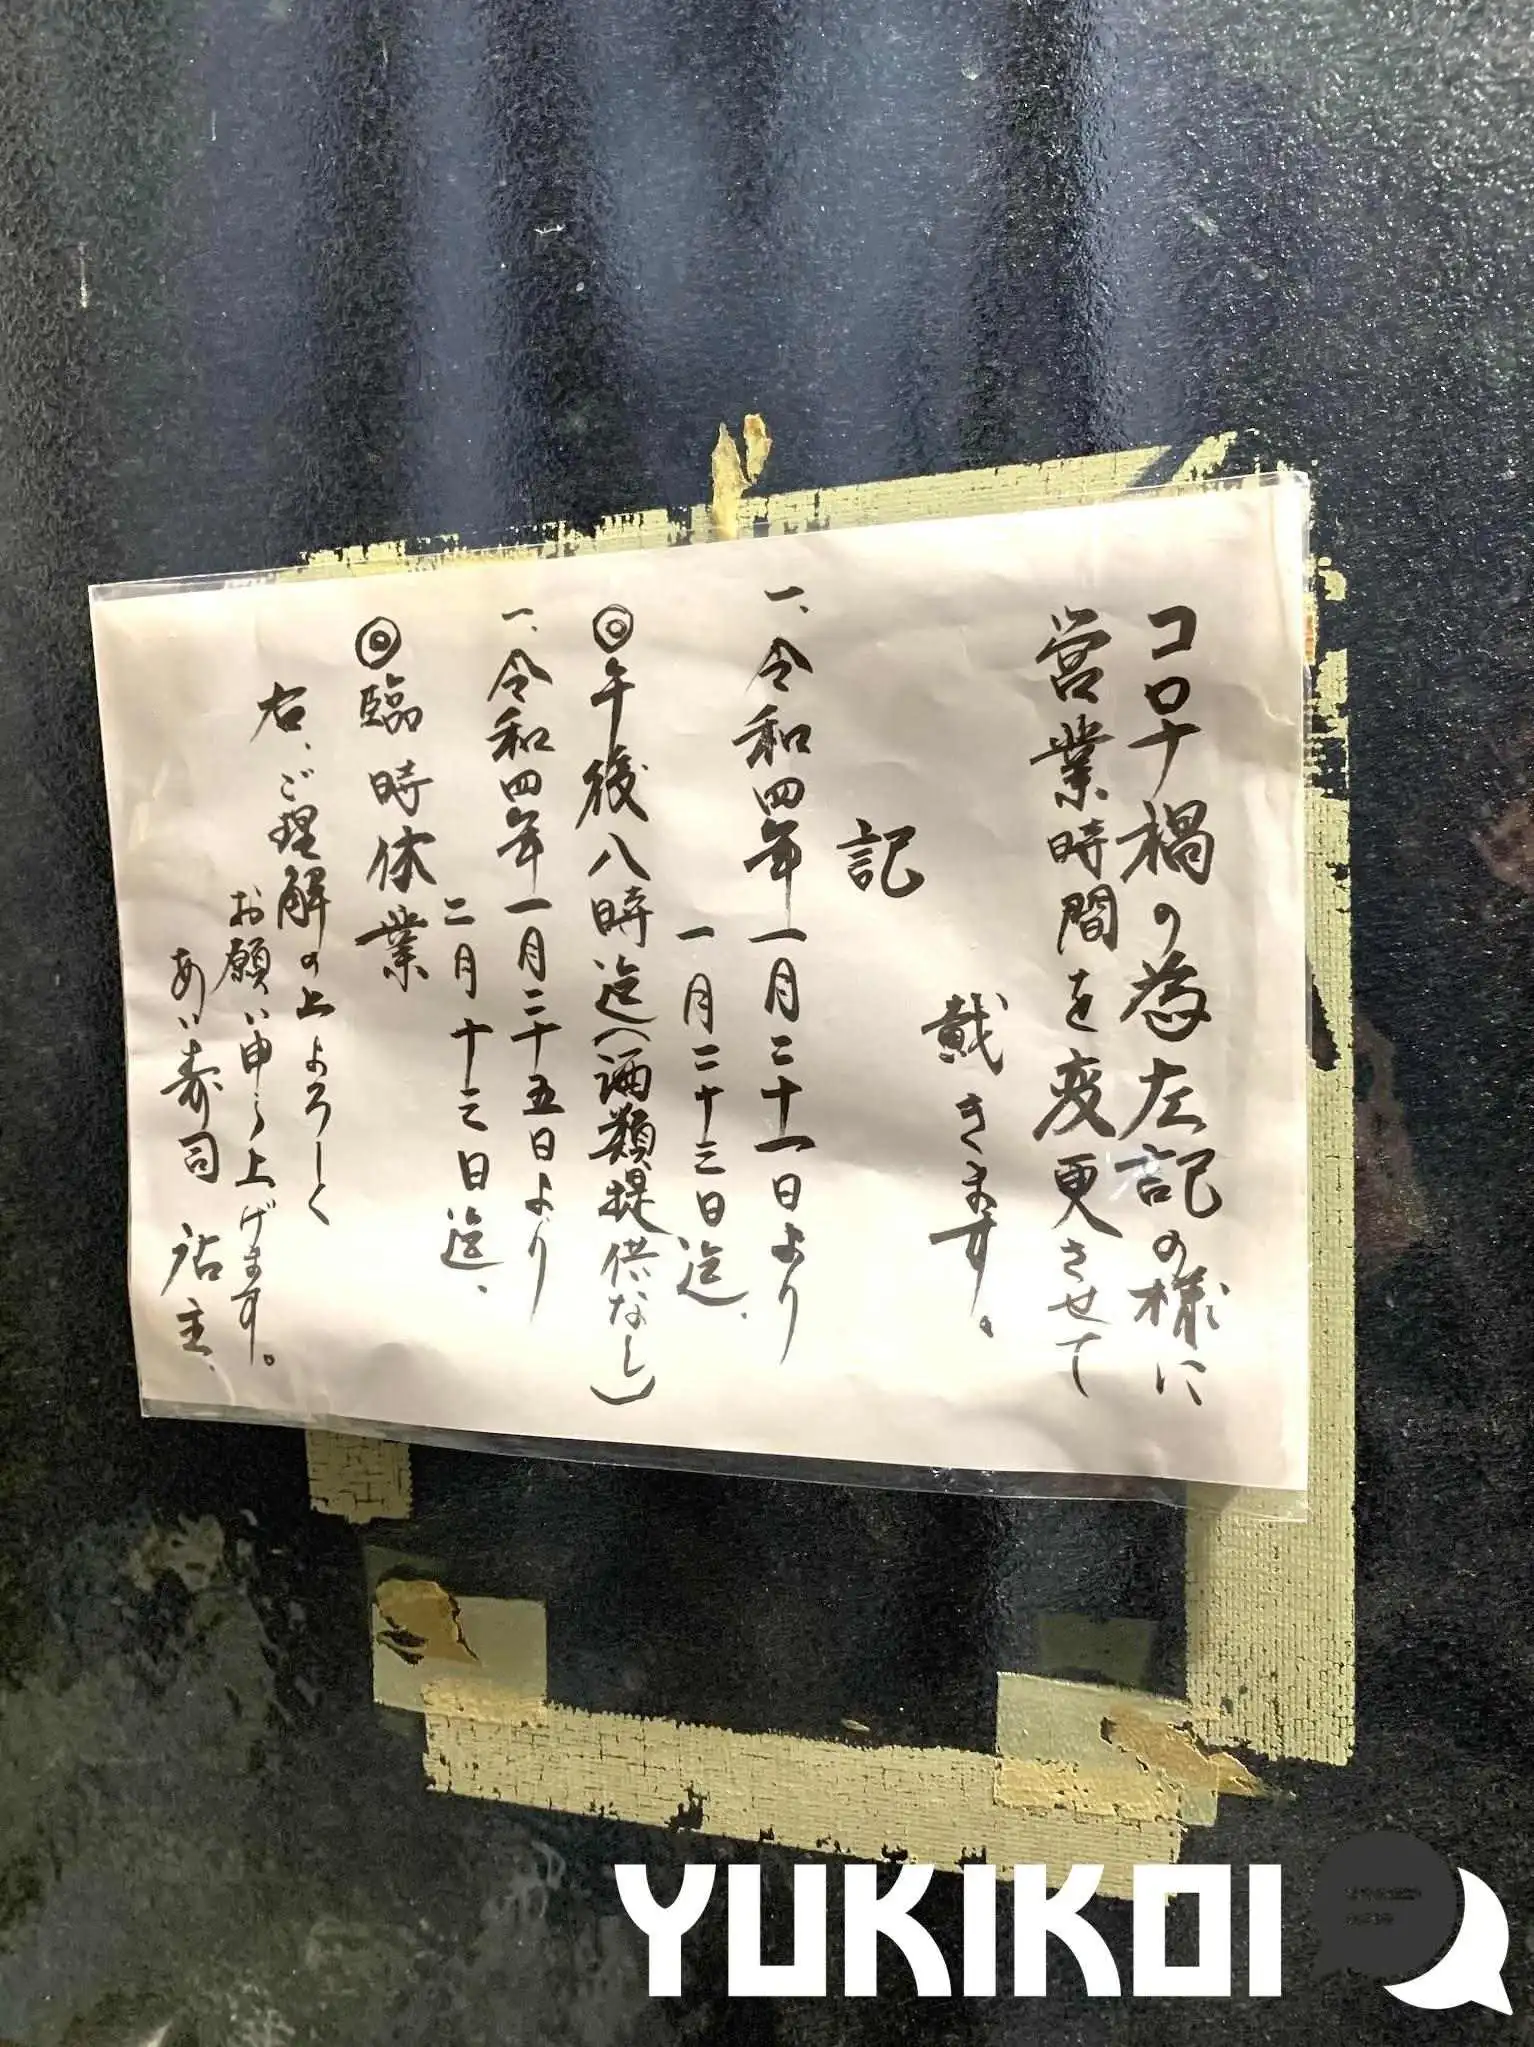 コロナ禍の為左記の様に
営業時間を変更させて
戴きます。
記
一、令和四年一月二十一日より
一月二十三日迄、
◎午後八時迄(酒類提供なし)
一、令和四年一月二十五日より
二月十三日迄、
◎臨時休業
右、ご理解の上よろしく
お願い申し上げます。
あい寿司 店主、
YUKIKOI